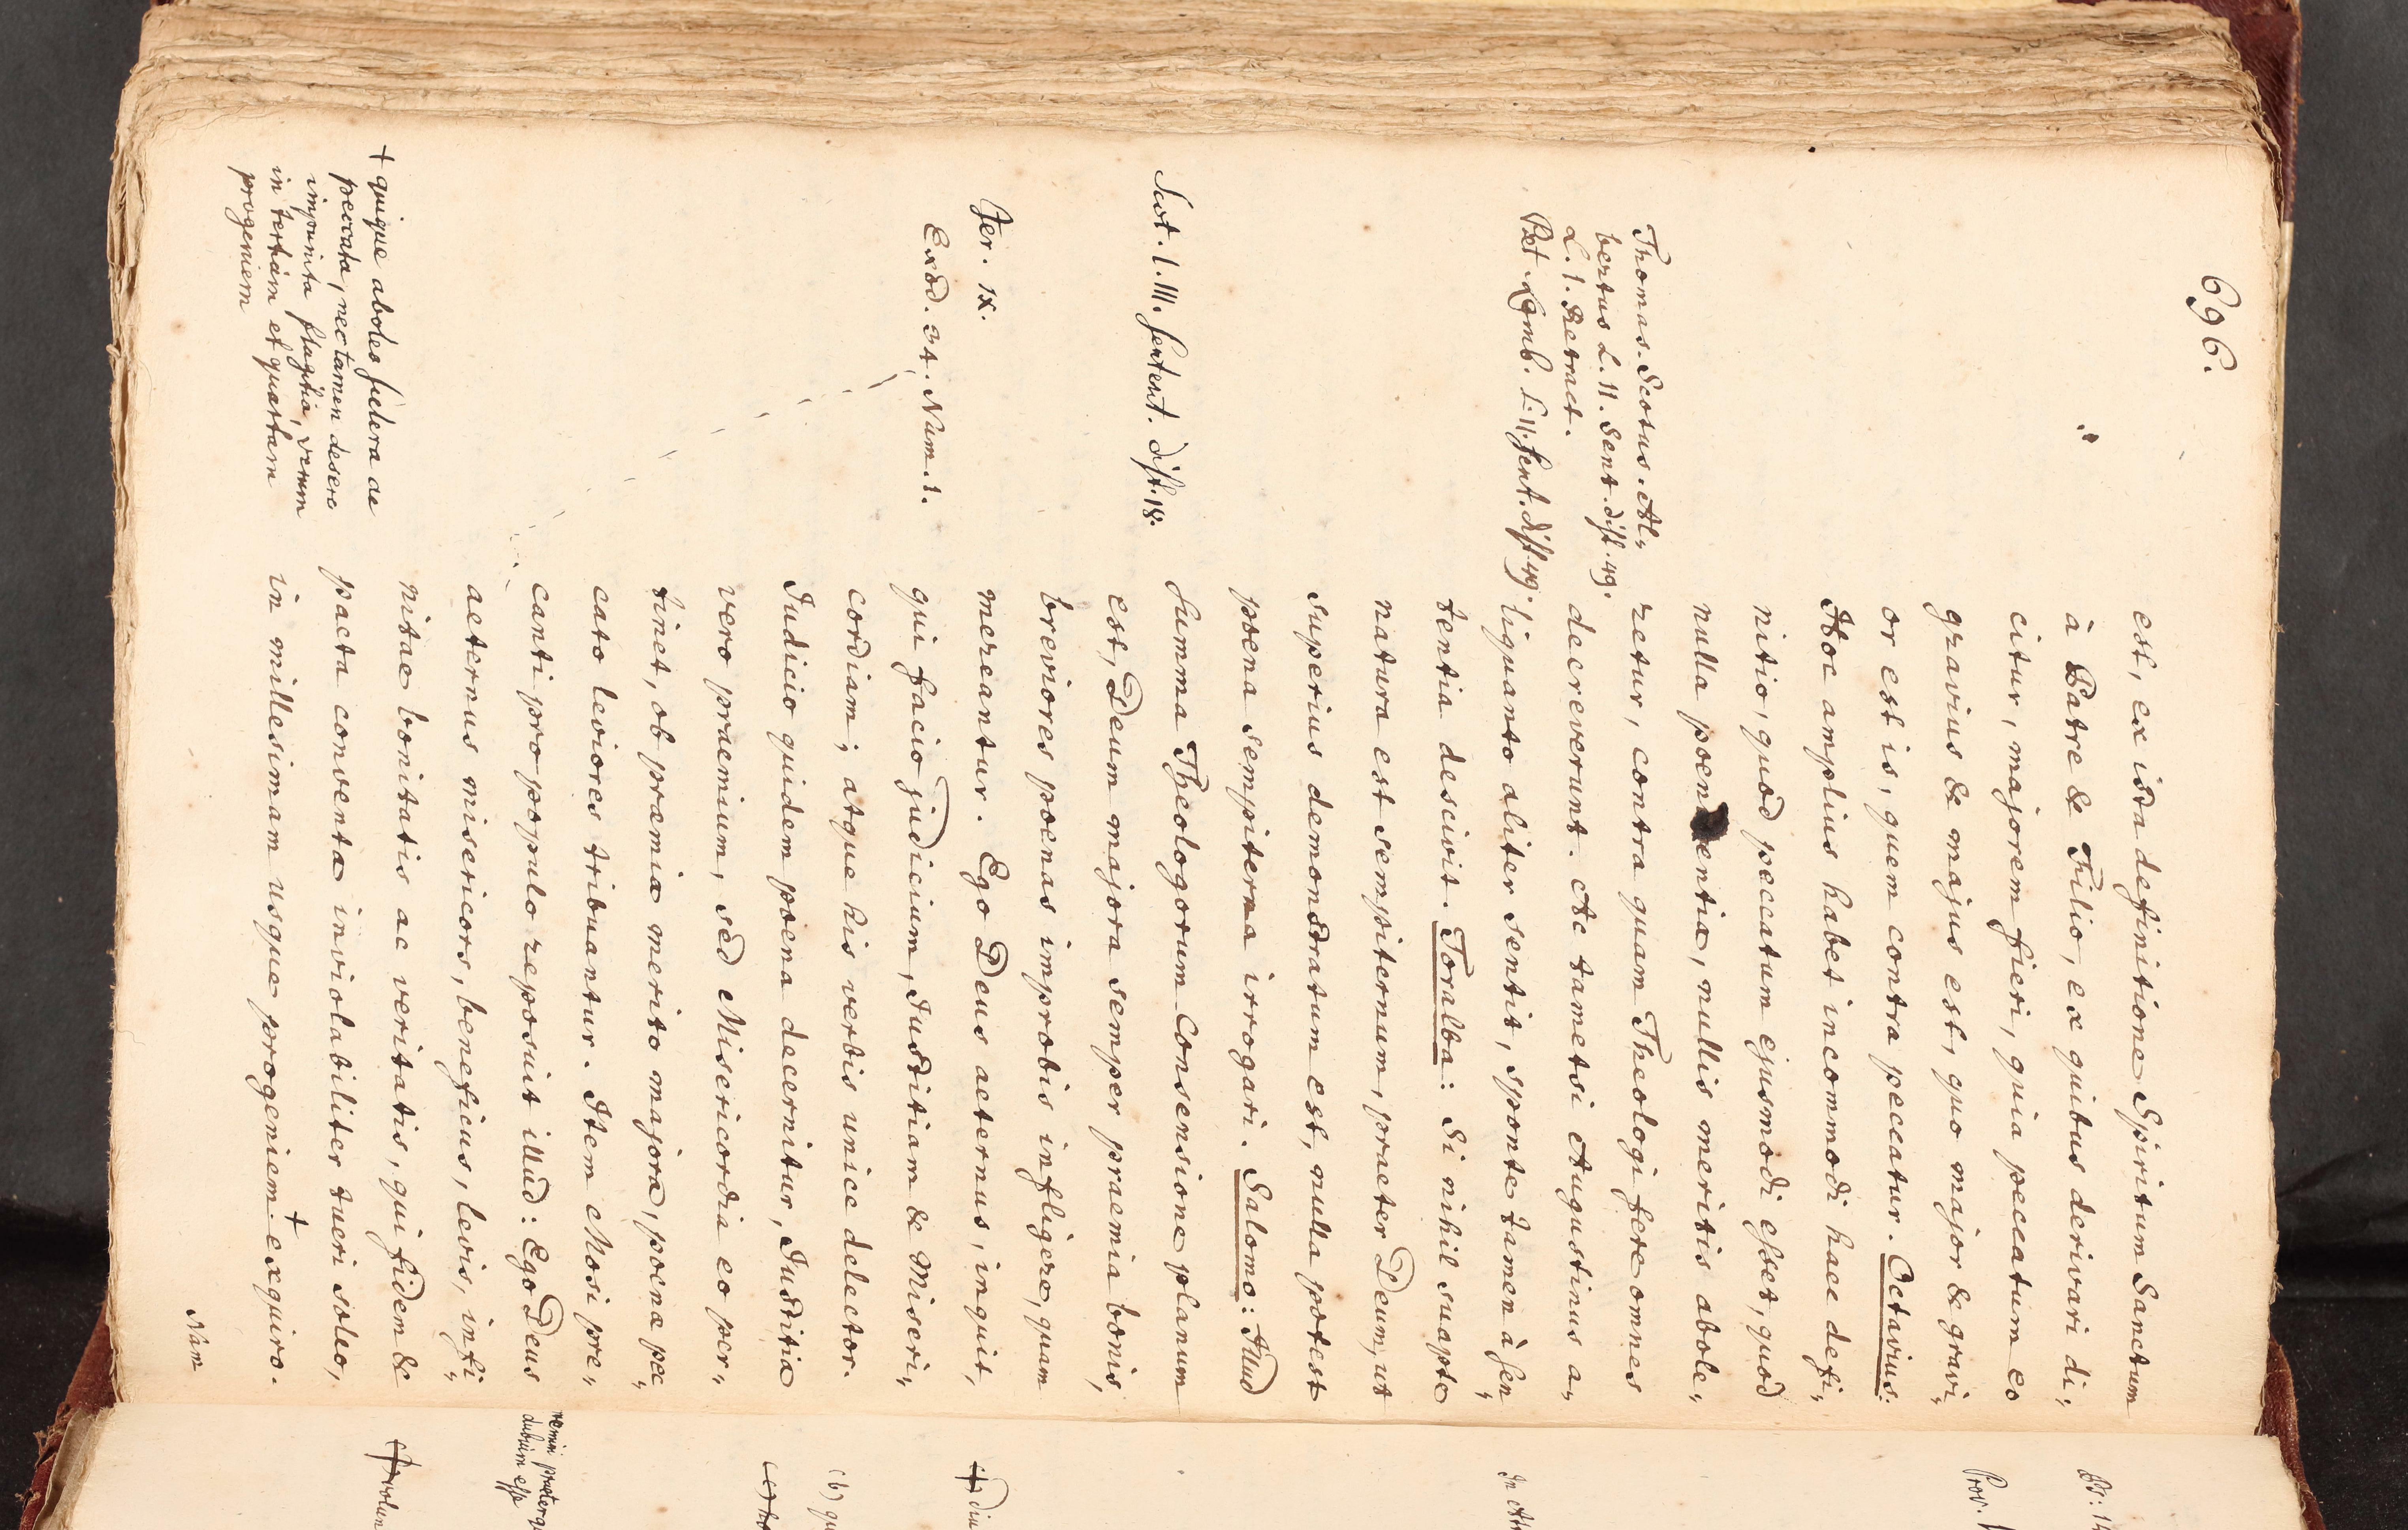 696.
est, ex ista definitione Spiritum Sanctum
à Patre & Filio, ex quibus derivari di„
citur, majorem fieri, quia peccatum eo
gravius & majus est, quo major & gravi„
or est is, quem contra peccatur. Octavius:
Hoc amplius habet incommodi haec defi„
nitio, quòd peccatum ejusmodi esset, quod
nulla poenitentia, nullis meritis abole„
retur, contra quam Theologi fere omnes
decreverunt. Ac tametsi Augustinus a„
liquanto aliter sentit, sponte tamen à sen„
tentia descivit. Toralba: Si nihil suapte
natura est sempiternum, praeter Deum, ut
superius demonstratum est, nulla potest
poena sempiterna irrogari. Salomo: Illud
summa Theologorum Consensione planum
est, Deum majora semper praemia bonis,
breviores poenas improbis infligere, quam
mereantur. Ego Deus aeternus, inquit,
qui facio judicium, Iustitiam & Miseri„
cordiam; atque his verbis unice delector.
Iudicio quidem poena decernitur, Iustitiae
vero praemium, sed Misericordia eo per„
tinet, ob praemia merito majora, poenae pec„
cato leviores tribuantur. Item Mosi pre„
canti pro populo reposuit illud: Ego Deus
aeternus misericors, beneficus, levis, infi„
nitae bonitatis ac veritatis, qui fidem &
pacta conventa inviolabiliter tueri soleo,
in millesimam usque progeniem + exquiro.
Nam
Thomas. Scotus. Al„
bertus L. 11. Sent. dist. 49.
L. 1. Retract.
Pet. Lomb. L. 11. sent. dist. 49.
Scot. l. III. sentent. dist. 18.
Jer. IX.
Exod. 34. Num. 1.
+ quique aboles scelera ac
peccata, nec tamen desero
impunita flagitia, verum
in tertiam et quartam
progeniem
Prov.
In Ath
(b) qu
nemini praeterqu
dubium esse